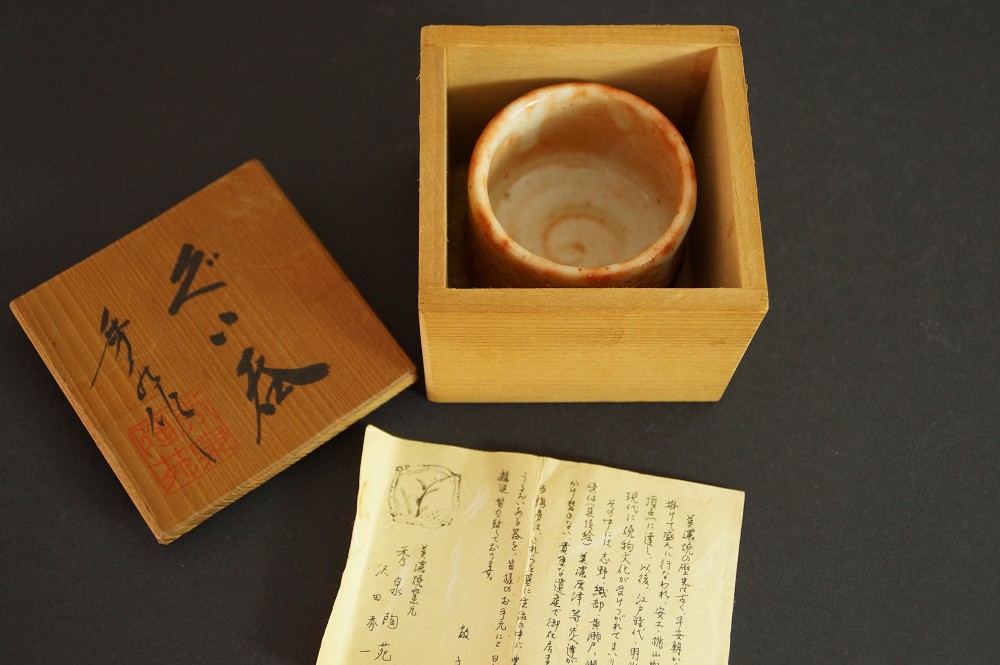 ぐい呑
秀泉作
美濃焼の歴史は古く、平安朝か
掛けて盛んに行なわれ、安土、桃山
頂点に達し、以後、江戸時代、明治
現代に焼物文化が受けつがれてまいり
その中には、志野、織部、黄瀬戸、
美濃唐津等、先人達が
かけ替のない貴重な遺産で御在居ま
当陶房は、これらを基に生活の中に
うるおいある器を、皆様のお手元にと日
精進努力致しております。
敬
美濃焼窯元
秀泉陶苑
沢田泰一